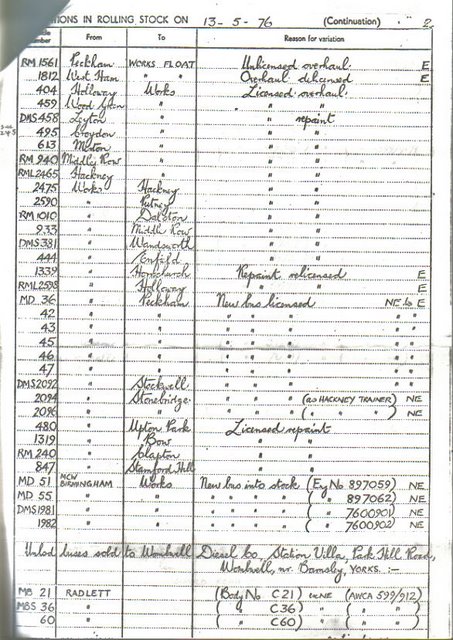 IONS IN ROLLING STOCK ON 13-5-76 (Continuation) 2.
Number From To Reason for variation
RM 1561 Peckham WORKS FLOAT Unlicensed overhaul. E
1812 West Ham " " Overhaul delicensed E
404 Holloway Works Licensed overhaul.
459 Wood Green " " "
DMS 458 Leyton " " repaint
495 Croydon " " "
613 Merton " " "
RM 940 Middle Row " " "
RML 2465 Hackney " " "
2475 Works Hackney " "
2590 " Putney " "
RM 1010 " Dalston " "
933 " Middle Row " "
DMS 381 " Wandsworth " "
444 " Enfield " "
1339 " Hornchurch Repaint relicensed E
RML 2598 " Holloway " " E
MD 36 " Peckham New bus licensed NE to E
42 " " " " " " "
43 " " " " " " "
45 " " " " " " "
46 " " " " " " "
47 " " " " " " "
DMS 2092 " Stockwell " " " " "
2094 " Stonebridge " " " (as HACKNEY TRAINER) NE
2096 " " " " " ( " " " ) NE
480 " Upton Park Licensed repaint
1319 " Bow " "
RM 240 " Clapton " "
847 " Stamford Hill " "
MD 51 MCW BIRMINGHAM Works New bus into stock (Eng No 897059) NE
MD 55 " " " " " " ( " 897062) NE
DMS 1981 " " " " " " ( " 7600901) NE
1982 " " " " " " ( " 7600902) NE
Unlcd buses sold to Wombwell Diesel Co, Station Villa, Park Hill Road,
Wombwell, nr. Barnsley, YORKS. :—
MB 21 RADLETT (Body No C21) in NE (AWCA 599/912)
MBS 36 " ( " C36) " ( " " )
60 " ( " C60) " ( " " )